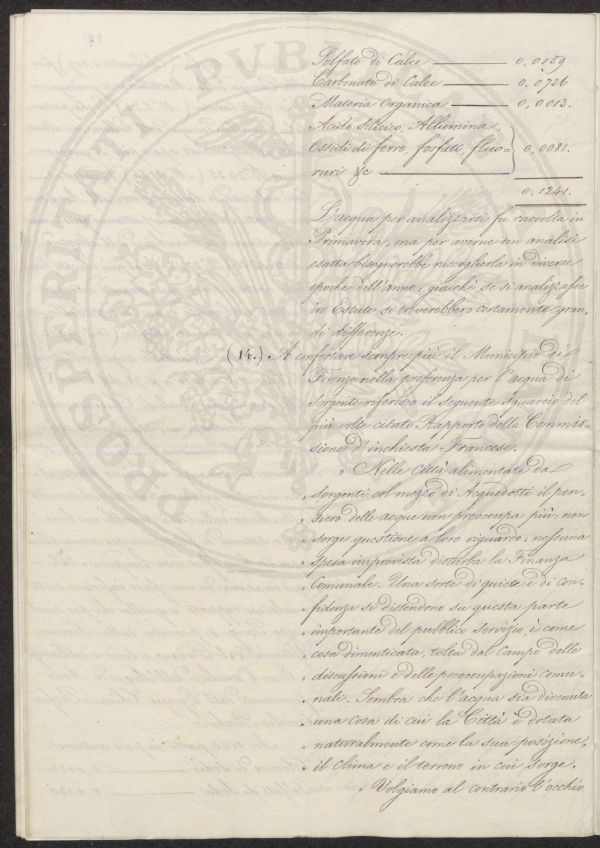 Solfato di Calce — 0,0159
Carbonato di Calce — 0,0726
Materia Organica — 0,0013.
Acido Silicico, Allumina,
Ossidi di ferro, fosfati, fluo-
ruri &c — 0,0081.
0,1241.
L'acqua per analizzarsi fu raccolta in
Primavera, ma per averne un analisi
esatta bisognerebbe raccoglierla in diverse
epoche dell'anno; giacchè se si analizzasse
in Estate si troverebbero certamente gran-
di differenze.
(14.) A confortare sempre più il Municipio di
Firenze nella preferenza per l'acqua di
Sorgente riferisco il seguente squarcio del
più volte citato Rapporto della Commis-
sione d'inchiesta Francese.
" Nelle Città alimentate da
" Sorgenti col mezzo di Acquedotti il pen-
" siero delle acque non preoccupa più; non
" sorge questione a loro riguardo: nessuna
" spesa imprevista disturba la Finanza
" Comunale. Una sorta di quiete e di con-
" fidenza si distendono su questa parte
" importante del pubblico servizio; è come
" cosa dimenticata, tolta dal campo delle
" discussioni e delle preoccupazioni comu-
" nali. Sembra che l'acqua sia divenuta
" una cosa di cui la Città è dotata
" naturalmente come la sua posizione,
" il clima e il terreno in cui sorge.
" Volgiamo al contrario l'occhio
PROSPERITATI PUBL